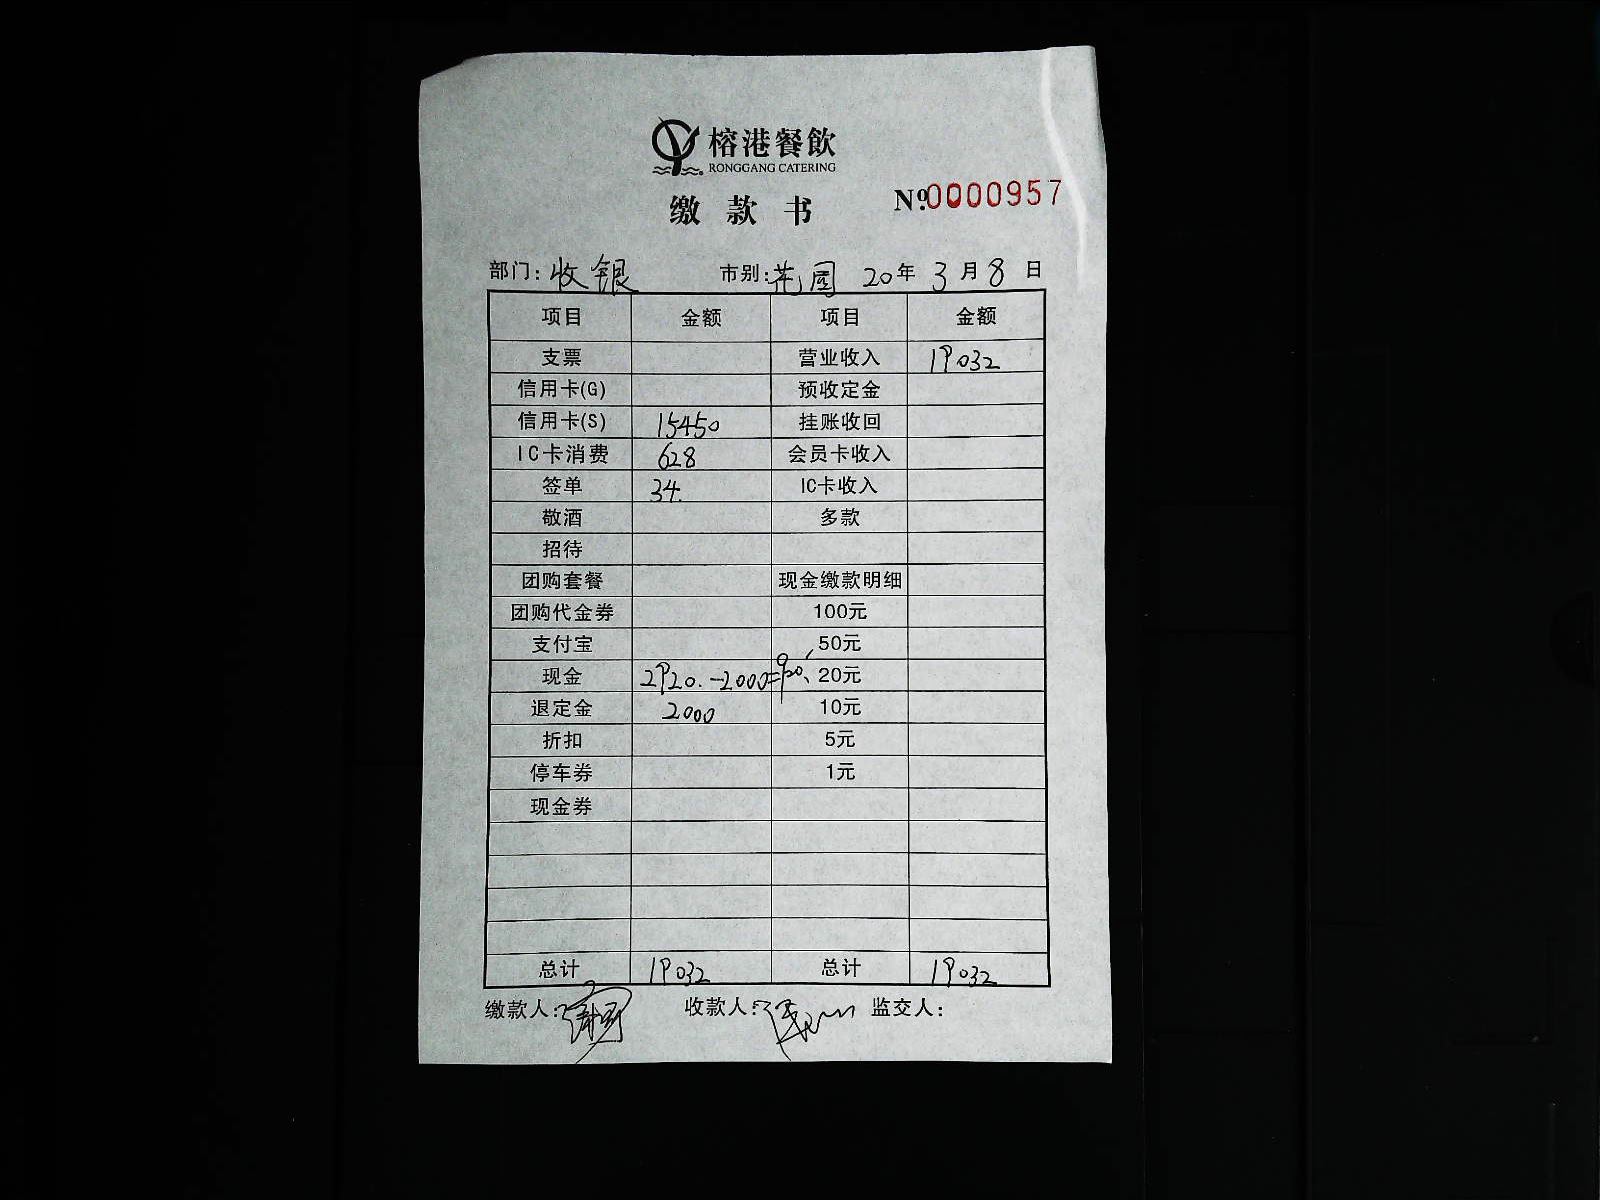 榕港餐飲
RONGGANG CATERING
缴款书 №0000957
部门：收银 市别：花园 20年3月8日
项目 金额 项目 金额
支票 营业收入 19032
信用卡(G) 预收定金
信用卡(S) 15450 挂账收回
IC卡消费 628 会员卡收入
签单 34. IC卡收入
敬酒 多款
招待
团购套餐 现金缴款明细
团购代金券 100元
支付宝 50元
现金 2920.-2000=920、 20元
退定金 2000 10元
折扣 5元
停车券 1元
现金券
总计 19032 总计 19032
缴款人： 收款人： 监交人：